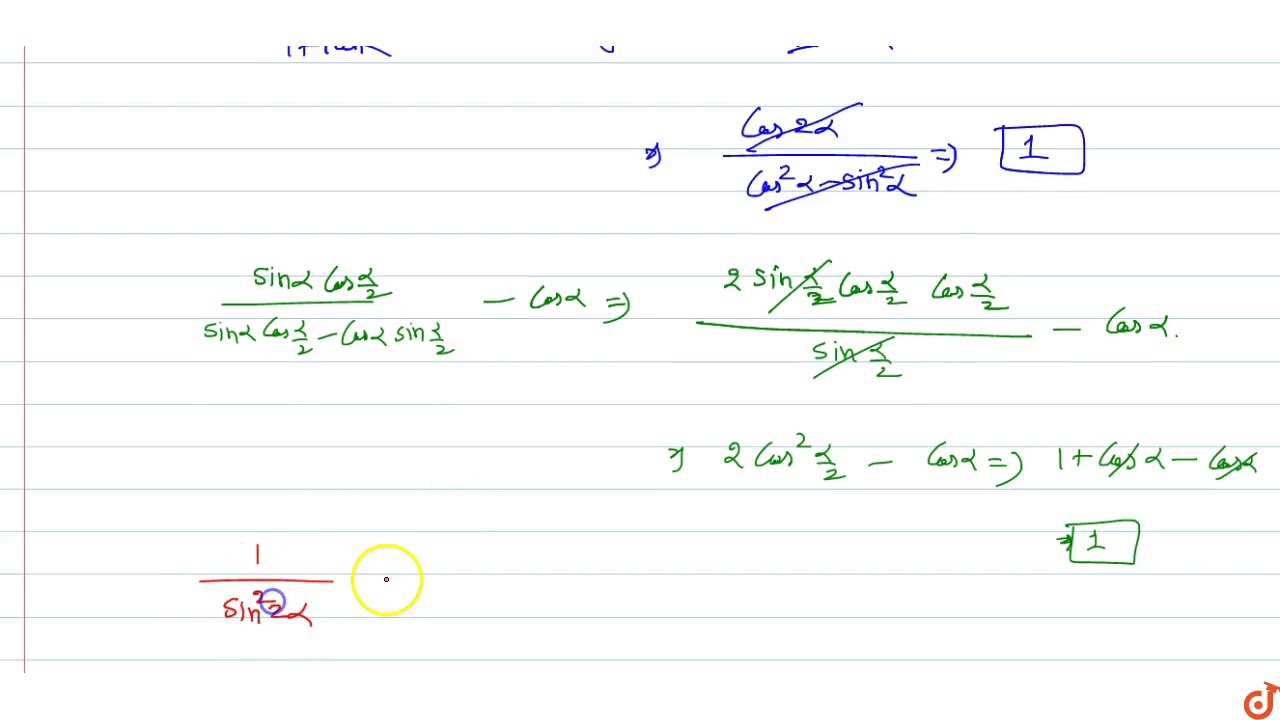 ⇒ cos2α / (cos²α − sin²α) ⇒ 1
sinα cos α/2 / (sinα cos α/2 − cosα sin α/2) − cosα ⇒ 2 sin α/2 cos α/2 cos α/2 / sin α/2 − cosα.
⇒ 2 cos² α/2 − cosα ⇒ 1 + cosα − cosα
⇒ 1
1 / sin²2α